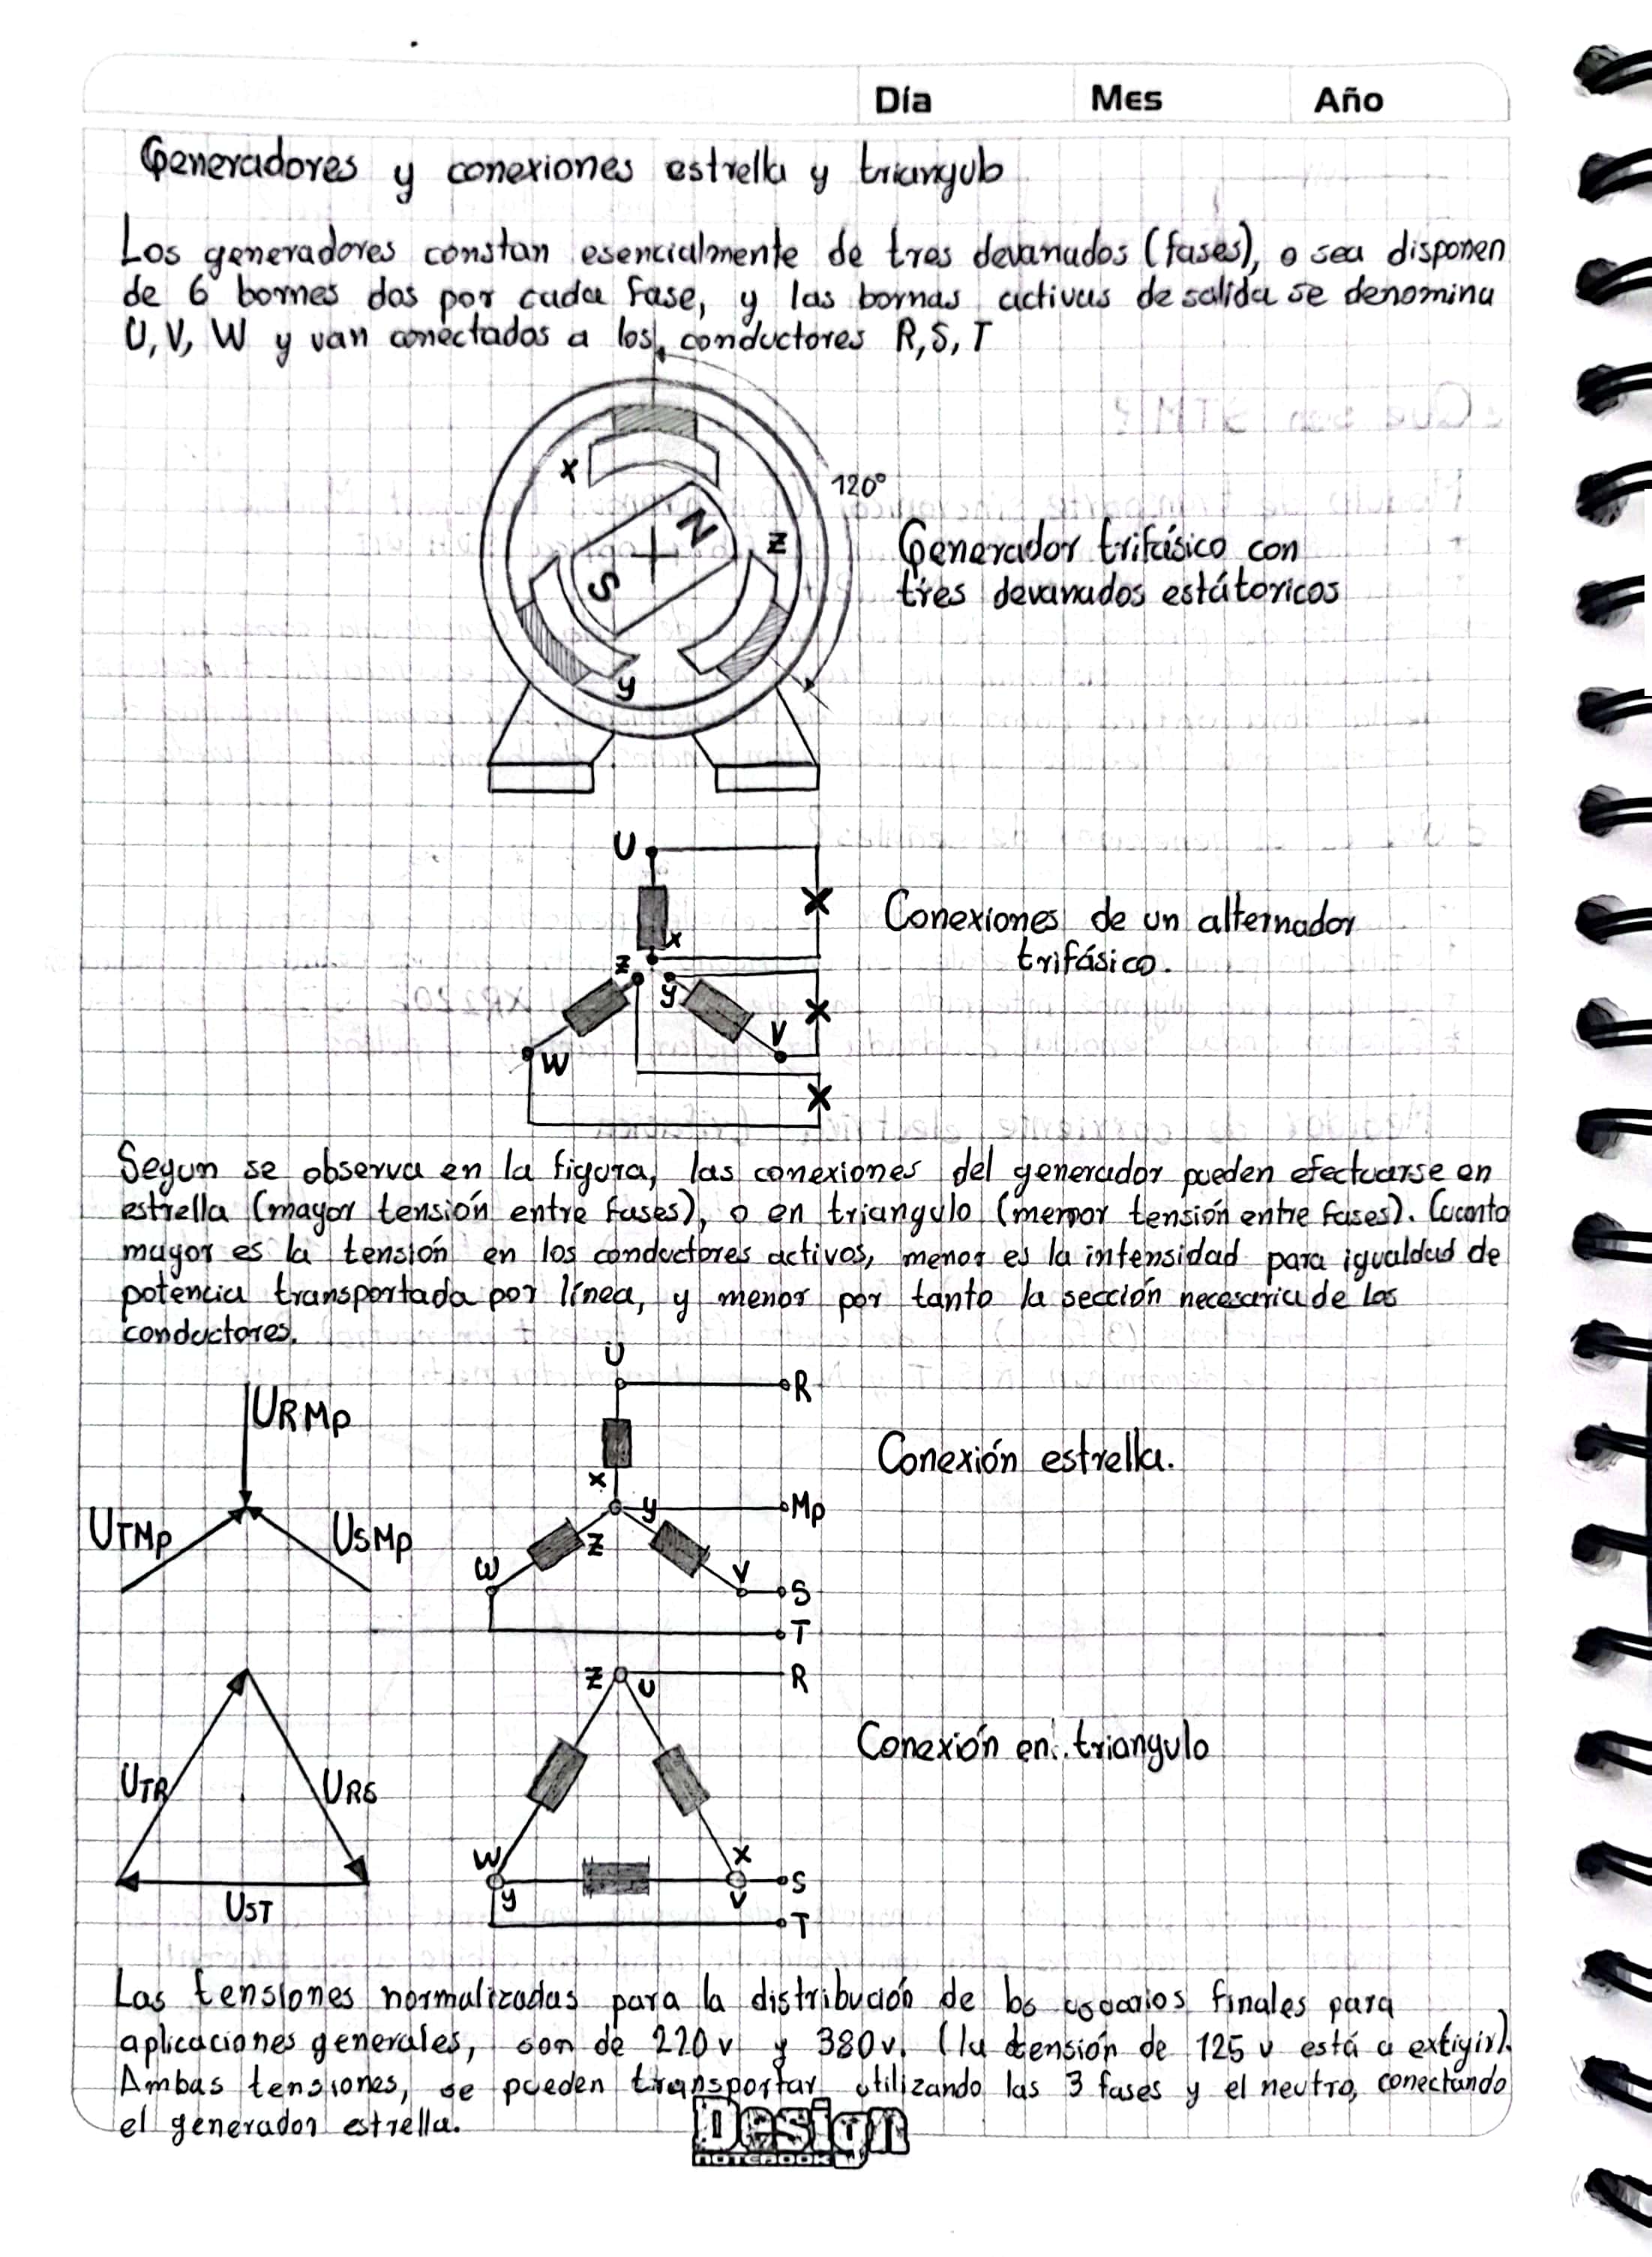 Día Mes Año
Generadores y conexiones estrella y triangulo
Los generadores constan esencialmente de tres devanados (fases), o sea disponen
de 6 bornes dos por cada fase, y las bornas activas de salida se denomina
U, V, W y van conectados a los conductores R, S, T
x
N
120°
z
S
y
Generador trifásico con
tres devanados estátoricos
U
x
z
y
V
W
Conexiones de un alternador
trifásico.
Segun se observa en la figura, las conexiones del generador pueden efectuarse en
estrella (mayor tensión entre fases), o en triangulo (menor tensión entre fases). Cuanto
mayor es la tensión en los conductores activos, menor es la intensidad para igualdad de
potencia transportada por línea, y menor por tanto la sección necesaria de los
conductores.
U
R
URMp
x
y
Mp
UTMp
USMp
z
W
V
S
T
Conexión estrella.
z
U
R
UTR
URS
Conexión en triangulo
W
x
y
V
S
UST
T
Las tensiones normalizadas para la distribución de los usuarios finales para
aplicaciones generales, son de 220v y 380v. (la tensión de 125 v está a extigir).
Ambas tensiones, se pueden transportar utilizando las 3 fases y el neutro, conectando
el generador estrella.
Design
NOTEBOOK